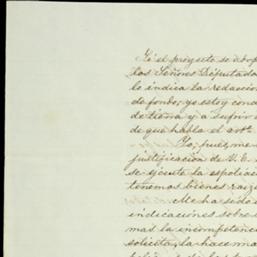 Si el proyecto se adop
los Señores Diputado
le indica la redaccion
de fondo; yo estoy cond
de tierra y a sufrir
de que habla el artº
Yo, pues, me
justificacion de V. E.
se ejecute la espoliac
tenemos bienes raize
Me ha sido
indicaciones sobre
mas la incompetenc
solicita, la hace mas